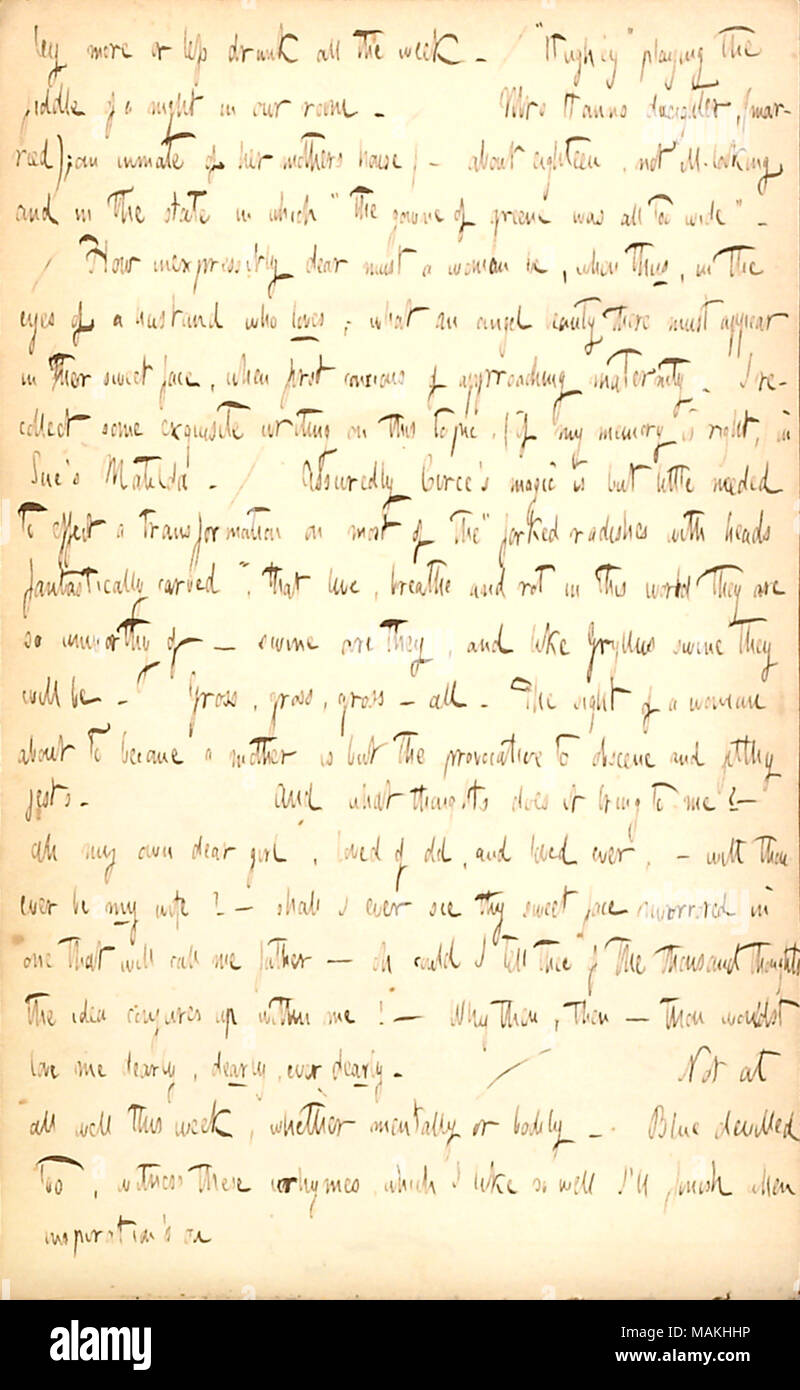 ley more or less drunk all the week. / "Hughey" playing the
fiddle of a night in our room. / Mrs Hanns daughter, (mar-
ried); an inmate of her mothers house / - about eighteen, not ill-looking
and in the state in which "the gowne of greene was all too wide".
/ How inexpressibly dear must a woman be, when thus, in the
eyes of a husband who loves; what an angel beauty there must appear
in her sweet face, when first conscious of approaching maternity. I re-
collect some exquisite writing on this topic, (if my memory is right, in
Sue's Matilda. / Assuredly Circe's magic is but little needed
to effect a transformation on most of the "forked radishes with heads
fantastically carved", that live, breathe and rot in this world they are
so unworthy of - swine are they, and like Gryllus swine they
will be. Gross, gross, gross - all. The sight of a woman
about to became a mother is but the provocative to obscene and filthy
jests. And what thoughts does it bring to me? -
Oh my own dear girl, loved of old, and loved ever, - wilt thou
ever be my wife? - shall I ever see thy sweet face mirrored in
one that will call me father - oh could I tell thee of the thousand thoughts
the idea conjures up within me! - Why then, then - thou wouldst
love me dearly, dearly, ever dearly. / Not at
all well this week, whether mentally or bodily -. Blue devilled
too, witness these rhymes which I like so well I'll finish when
inspiration's on
alamy
alamy
Image ID: MAKHHP
www.alamy.com